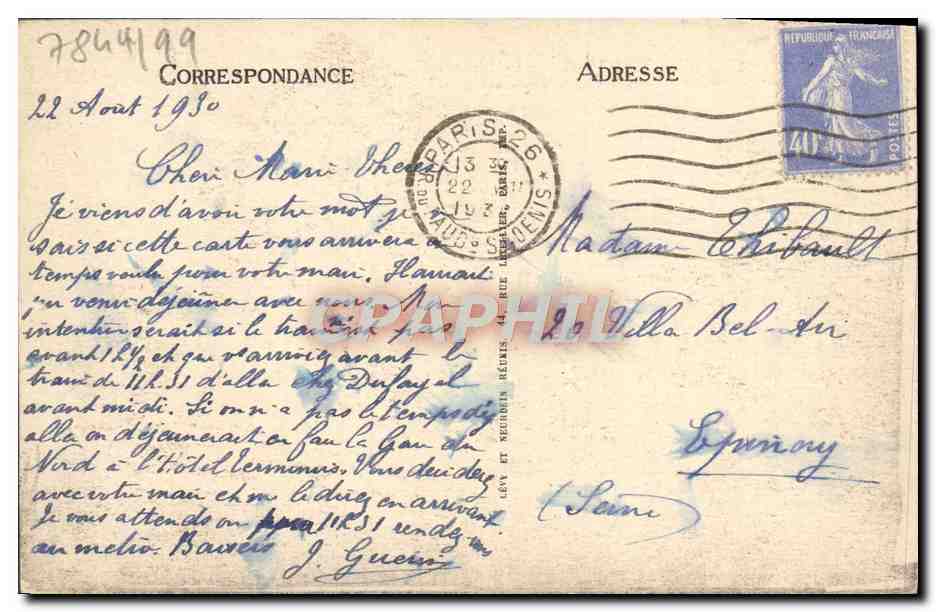 7844/99
CORRESPONDANCE
ADRESSE
REPUBLIQUE FRANÇAISE
40
POSTES
PARIS 26
13 30
22
193
R. DU FAUBG ST DENIS
22 Aout 1930
Cheri Marie Therese
Je viens d'avoir votre mot je
sais si cette carte vous arrivera à
temps voulu pour votre mari.
venir déjeuner avec nous Mon
intention serait si le train pas
avant 12h½ et que vs arriviez avant le
train de 11h.31 d'aller chez Dufayel
avant midi. Si on n'a pas le temps d'y
aller on déjeunerait en face la Gare du
Nord à l'Hôtel Terminus. Vous deciderez
avec votre mari et me le direz en arrivant.
Je vous attends 11h31 rendez-vous
au metro. Baisers
J. Guerin
LÉVY ET NEURDEIN RÉUNIS, 44, RUE LETELLIER, PARIS, IMP.
CPAPHIL
Madame Thibault
20 Villa Bel-Air
Epinay
(Seine)